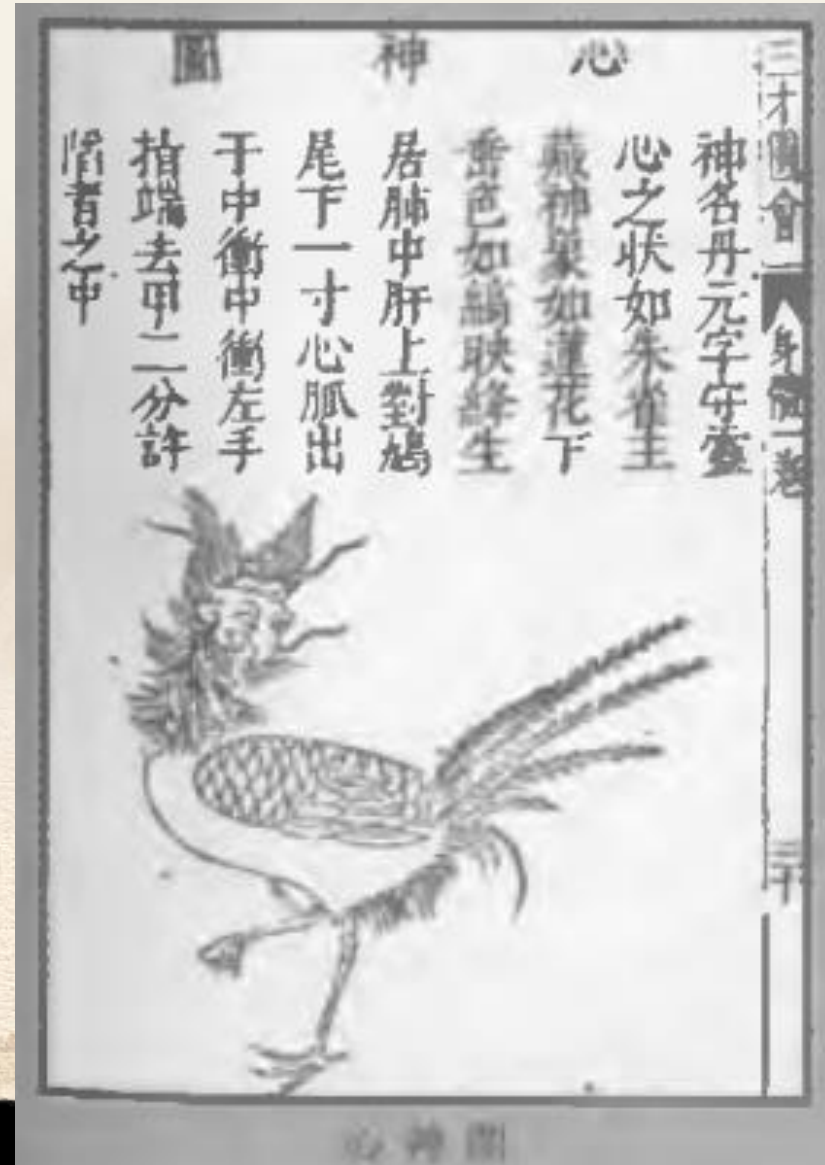 心神圖
三才圖會 身體一卷 三十
神名丹元字守靈
心之狀如朱雀主
藏神象如蓮花下
垂色如縞映絳生
居肺中肝上對鳩
尾下一寸心脈出
于中衝中衝左手
指端去甲二分許
陷者之中
心神圖